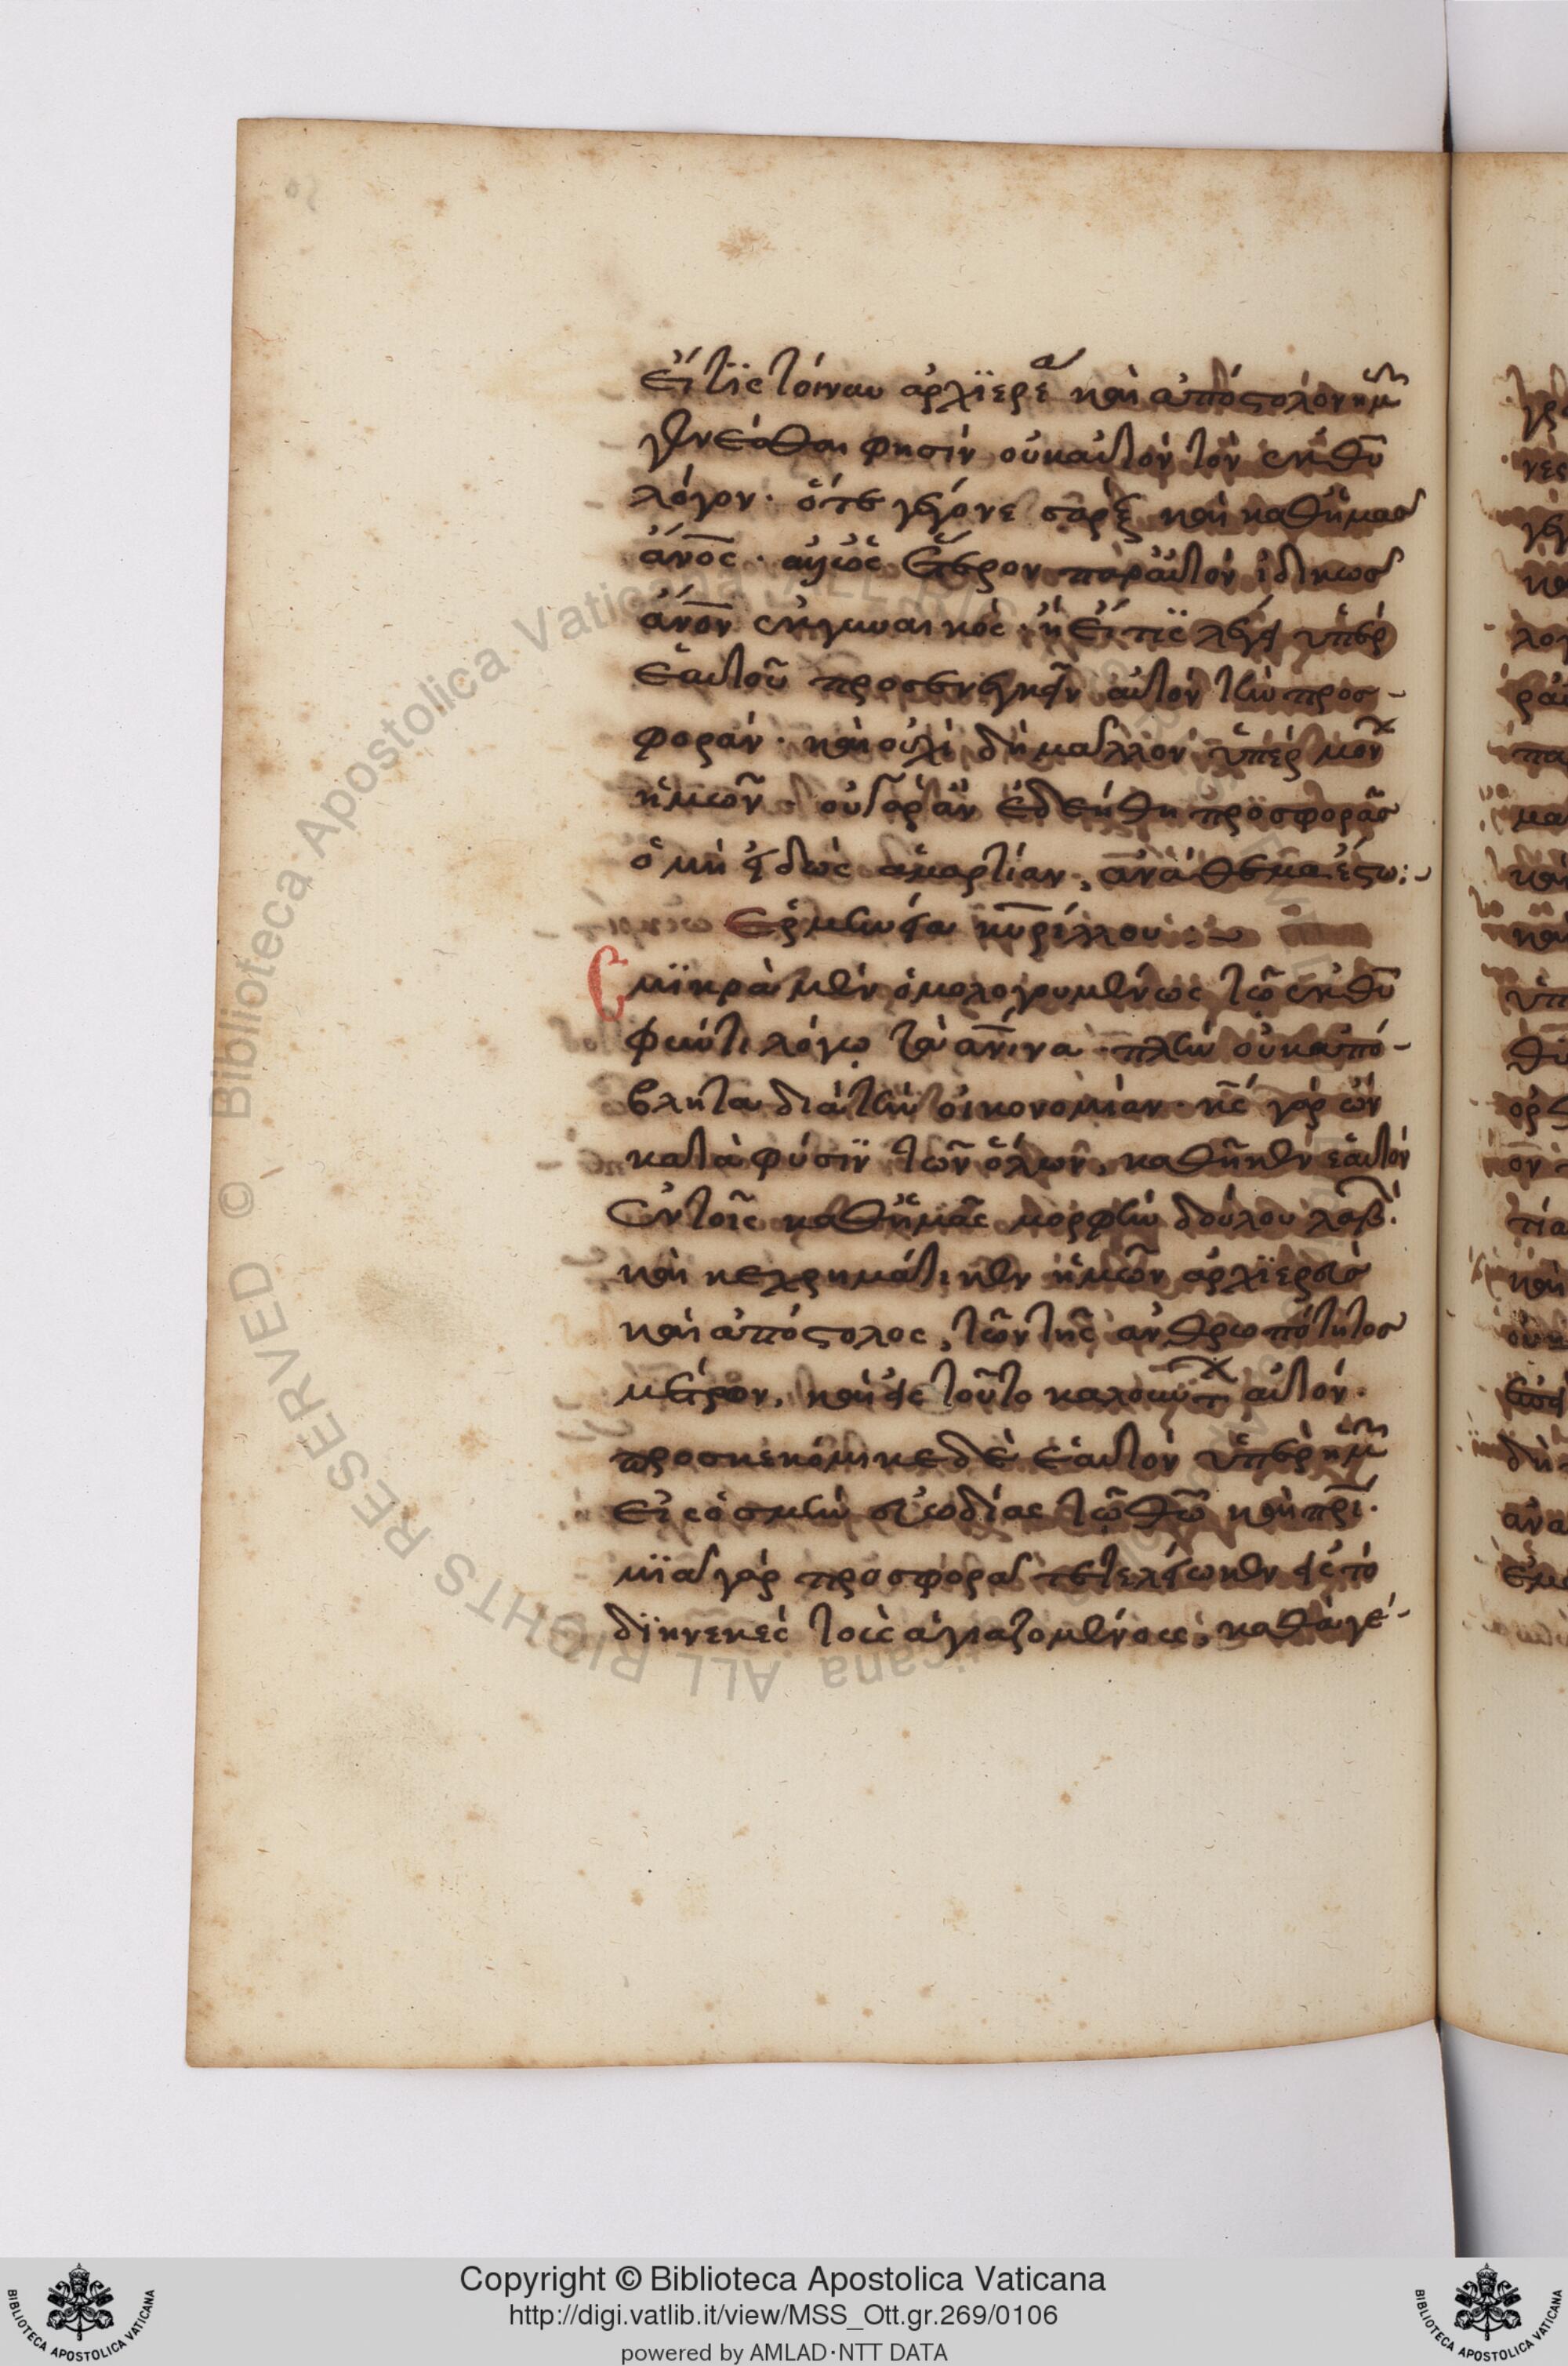 Εἴ τϊς τοίνυν ἀρχϊερέα καὶ ἀπόστολον ἡμῶν
γενέσθαι φησὶν οὐκ αὐτὸν τὸν ἐκ θῡ
λόγον· ὅτε γέγονε σὰρξ καὶ καθ' ἡμᾶσ
ἄνο̄ς· ἀλλ' ὡς ἕτερον παρ' αὐτὸν ἰδικῶσ
ἄνο̄ν ἐκ γυναικός· ἢ εἴ τϊς λέγει ὑπὲρ
ἑαυτοῦ προσενεγκεῖν αὐτὸν τὴν προσ-
φοράν· καὶ οὐχὶ δὴ μᾶλλον ὑπὲρ μόν
ἡμῶν· οὐ γὰρ ἂν ἐδεήθη προσφορᾶσ
ὁ μὴ εἰδὼς ἁμαρτίαν, ἀνάθεμα ἔστω:~
Ἑρμηνεία κυρίλλου:~
Σμϊκρὰ μὲν ὁμολογουμένως τῷ ἐκ θῡ
φύντι λόγῳ τὰ ἀν̄ινα· πλὴν οὐκ ἀπό-
βλητα διὰ τὴν οἰκονομίαν· κ̄ς γὰρ ὢν
κατὰ φύσϊν τῶν ὅλων, καθῆκεν ἑαυτὸν
ἐν τοῖς καθ' ἡμᾶς μορφὴν δούλου λαβ.
καὶ κεχρημάτικεν ἡμῶν ἀρχϊερεὺσ
καὶ ἀπόστολος, τῶν τῆς ἀνθρωπότητοσ
μέτρων, καὶ εἰς τοῦτο καλούντ αὐτόν.
προσκεκόμικε δὲ ἑαυτὸν ὑπὲρ ἡμῶν
εἰς ὀσμὴν εὐωδίας τῷ θω̄ καὶ πρ̄ι.
μϊᾷ γὰρ προσφορᾷ τετελείωκεν εἰς τὸ
δϊηνεκὲς τοὺς ἁγιαζομένους, καθὰ γέ-
Copyright © Biblioteca Apostolica Vaticana
http://digi.vatlib.it/view/MSS_Ott.gr.269/0106
powered by AMLAD·NTT DATA